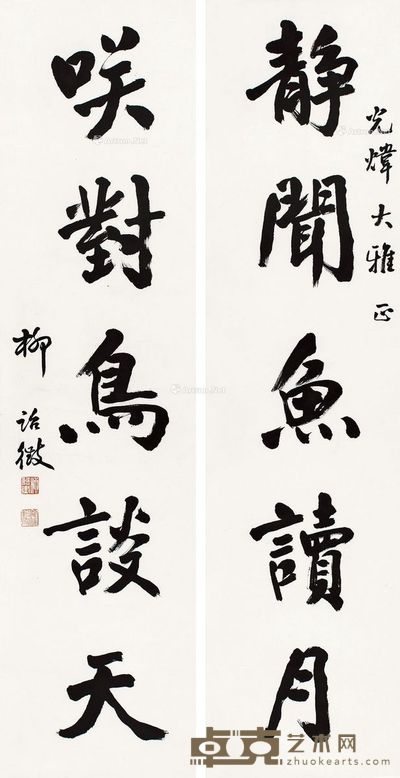 光煒大雅正
靜聞魚讀月
咲對鳥談天
柳詒徵
卓克艺术网
zhuokearts.com